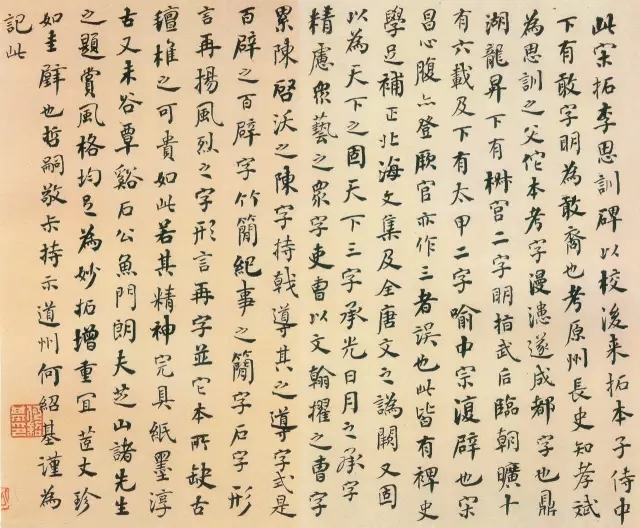 此宋拓李思訓碑以校後来拓本子侍中
下有敢字明為敢裔也考原州長史知孝斌
為思訓之父佗本考字漫漶遂成都字也鼎
湖龍昇下有桝宫二字明指武后臨朝曠十
有六載及下有太甲二字喻中宗復辟也宋
昌心腹上登厥官亦作三者误也此皆有裨史
學足補正北海文集及全唐文之譌闕又固
以為天下之固天下三字承光日月之承字
精慮眾藝之眾字吏曹以文翰擢之曹字
累陳啓沃之陳字持戟導其之導字式是
百辟之百辟字竹簡紀事之簡字石字形
言再揚風烈之字形言再字並它本所缺古
氊椎之可貴如此若其精神完具紙墨淳
古又未谷覃谿石公魚門朗夫芝山諸先生
之題賞風格均足為妙拓增重宜荎丈珍
如圭璧也哲嗣敬六持示道州何紹基謹為
記此